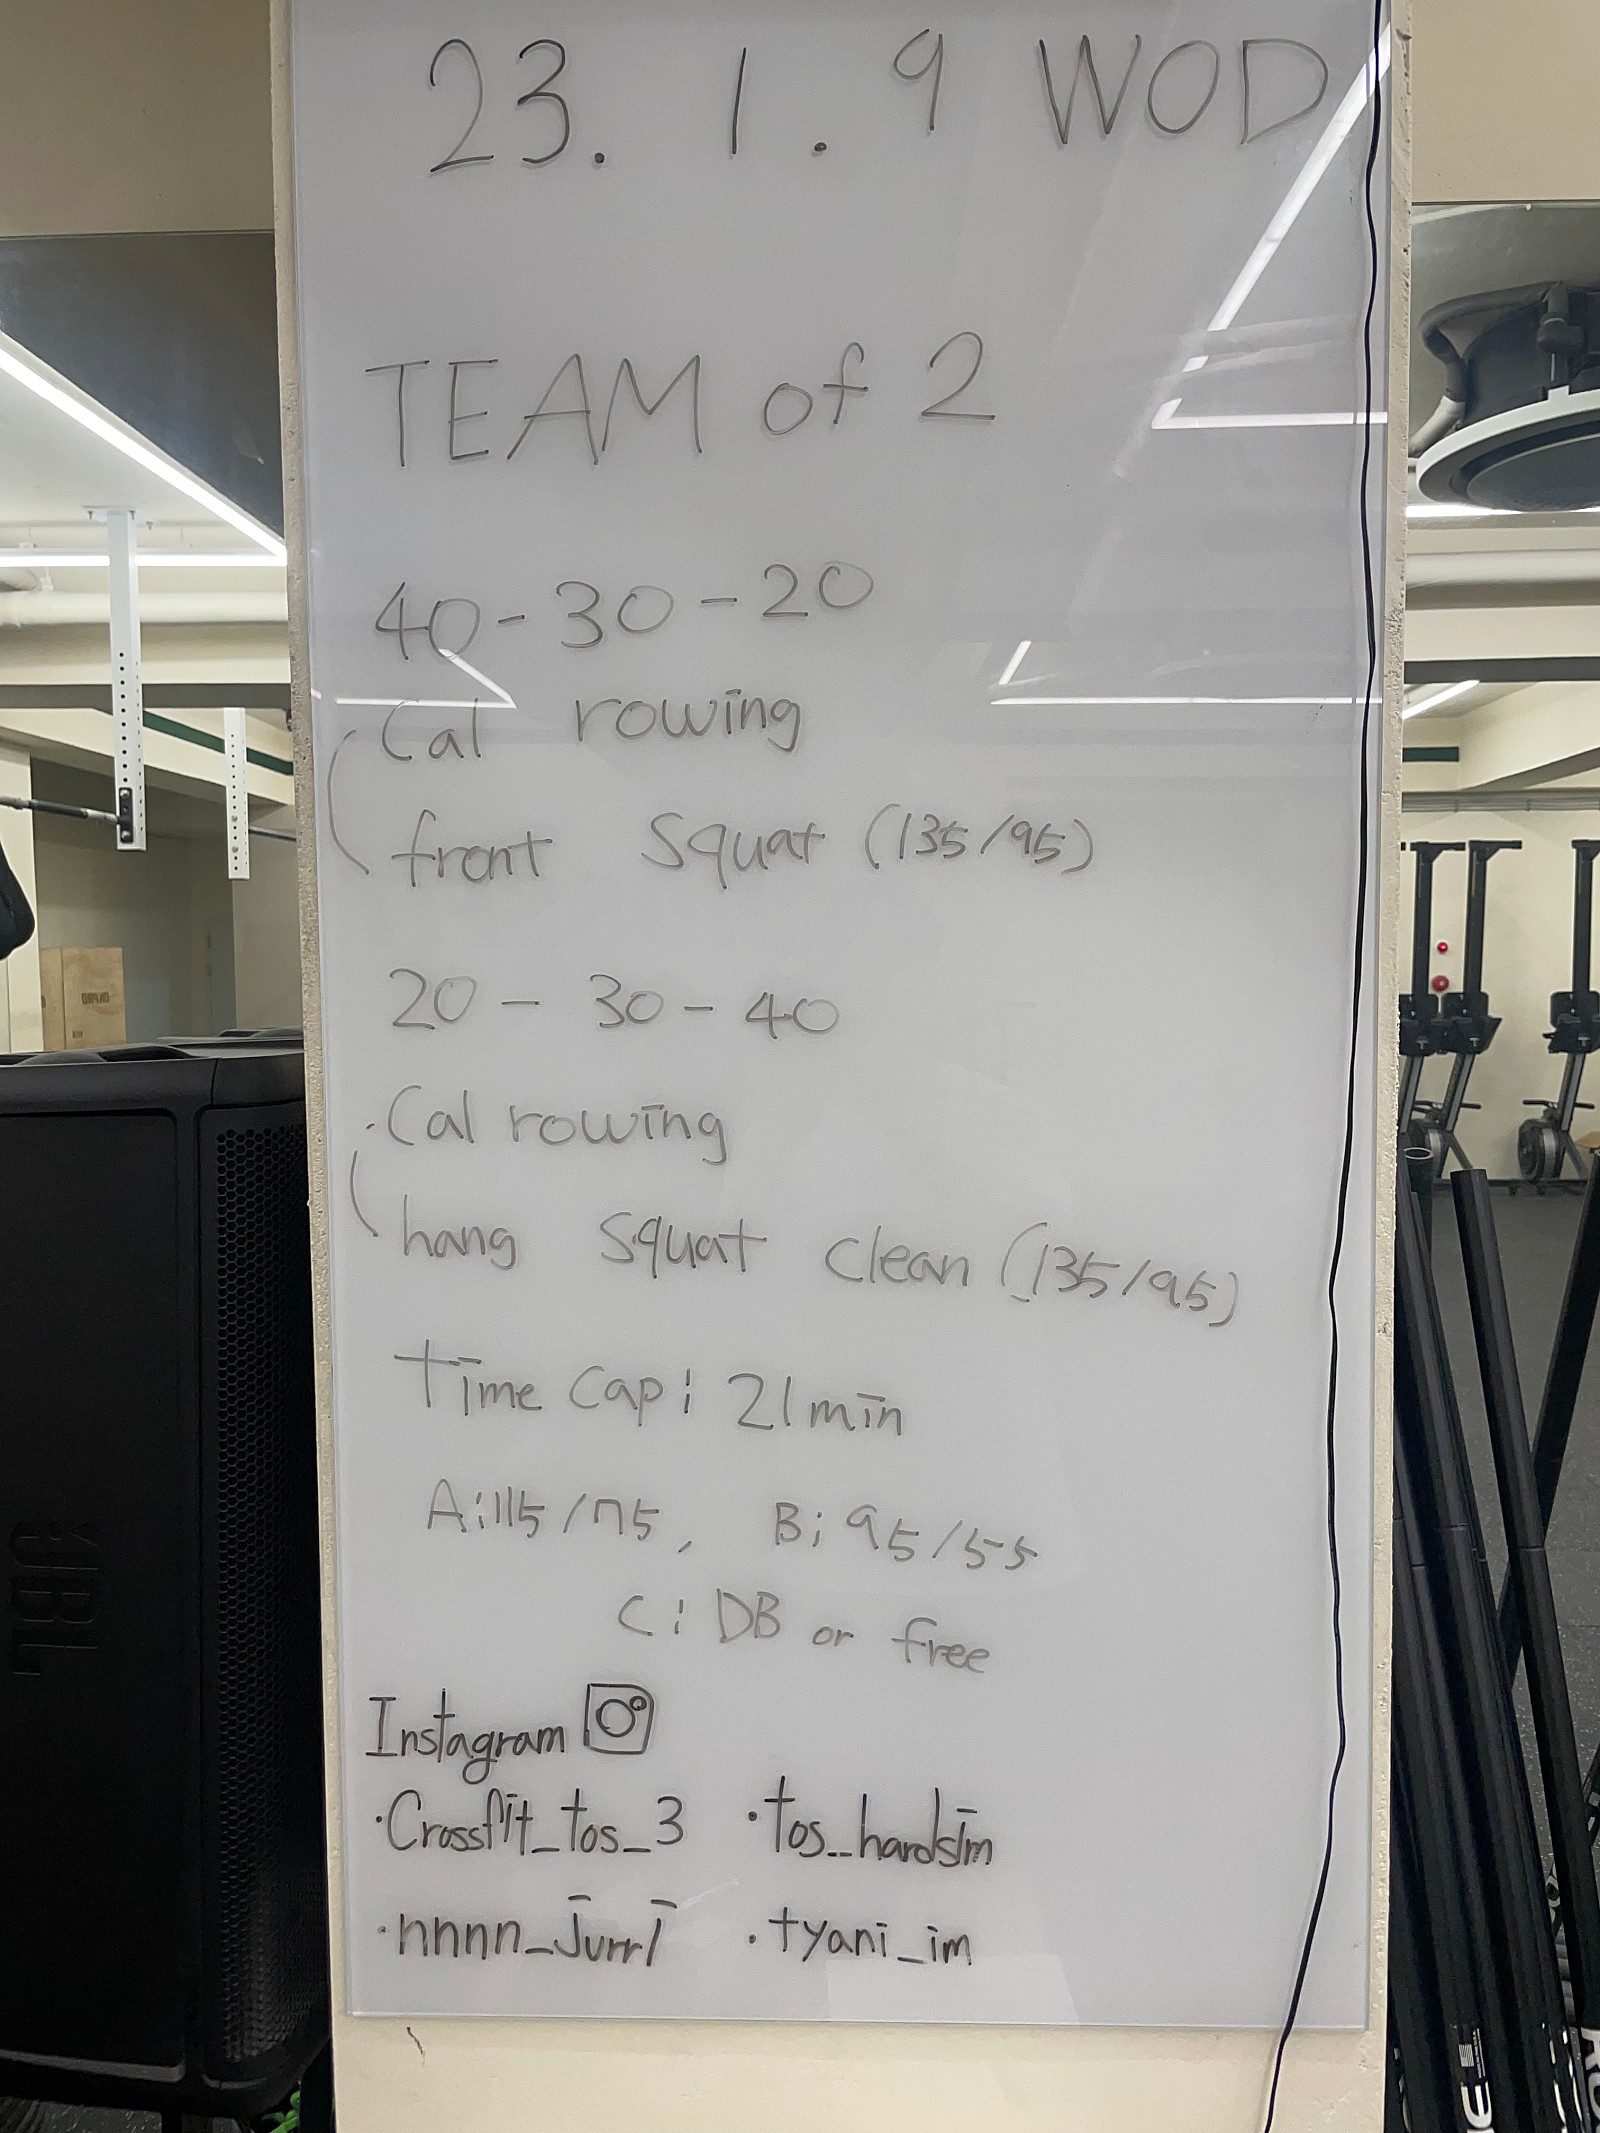 23. 1. 9 WOD
TEAM of 2
40-30-20
Cal rowing
front squat (135/95)
20-30-40
Cal rowing
hang squat clean (135/95)
Time cap: 21min
A:115/75, B: 95/55
C: DB or free
Instagram
·Crossfit_tos_3 ·tos_hardslim
·nnnn_jurrl ·tyani_im
JBL